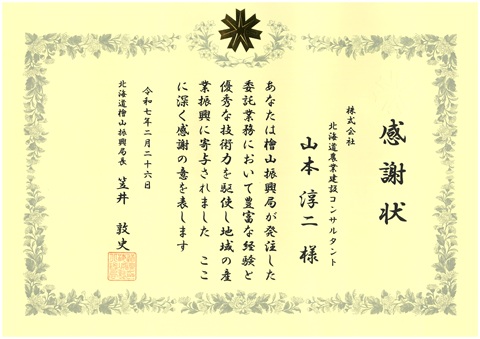 感謝状
株式会社
北海道農業建設コンサルタント
山本淳二様
あなたは檜山振興局が発注した
委託業務において豊富な経験と
優秀な技術力を駆使し地域の産
業振興に寄与されました ここ
に深く感謝の意を表します
令和七年二月二十六日
北海道檜山振興局長 笠井敦史